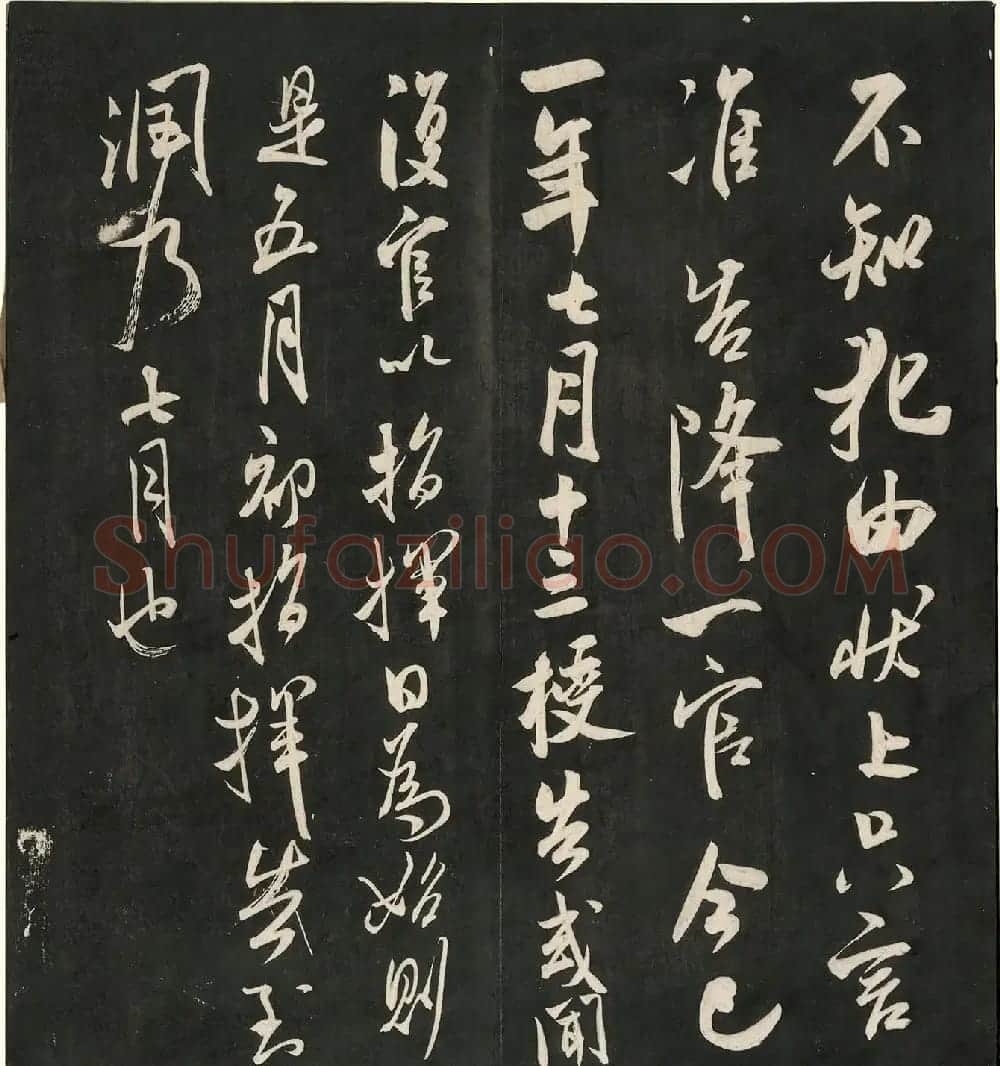 不知犯由状上只言
准告降一官今已
一年七月十三授告或闻
復官以指揮日為始則
是五月初指揮告到
潤乃七月也
Shufaziliao.COM